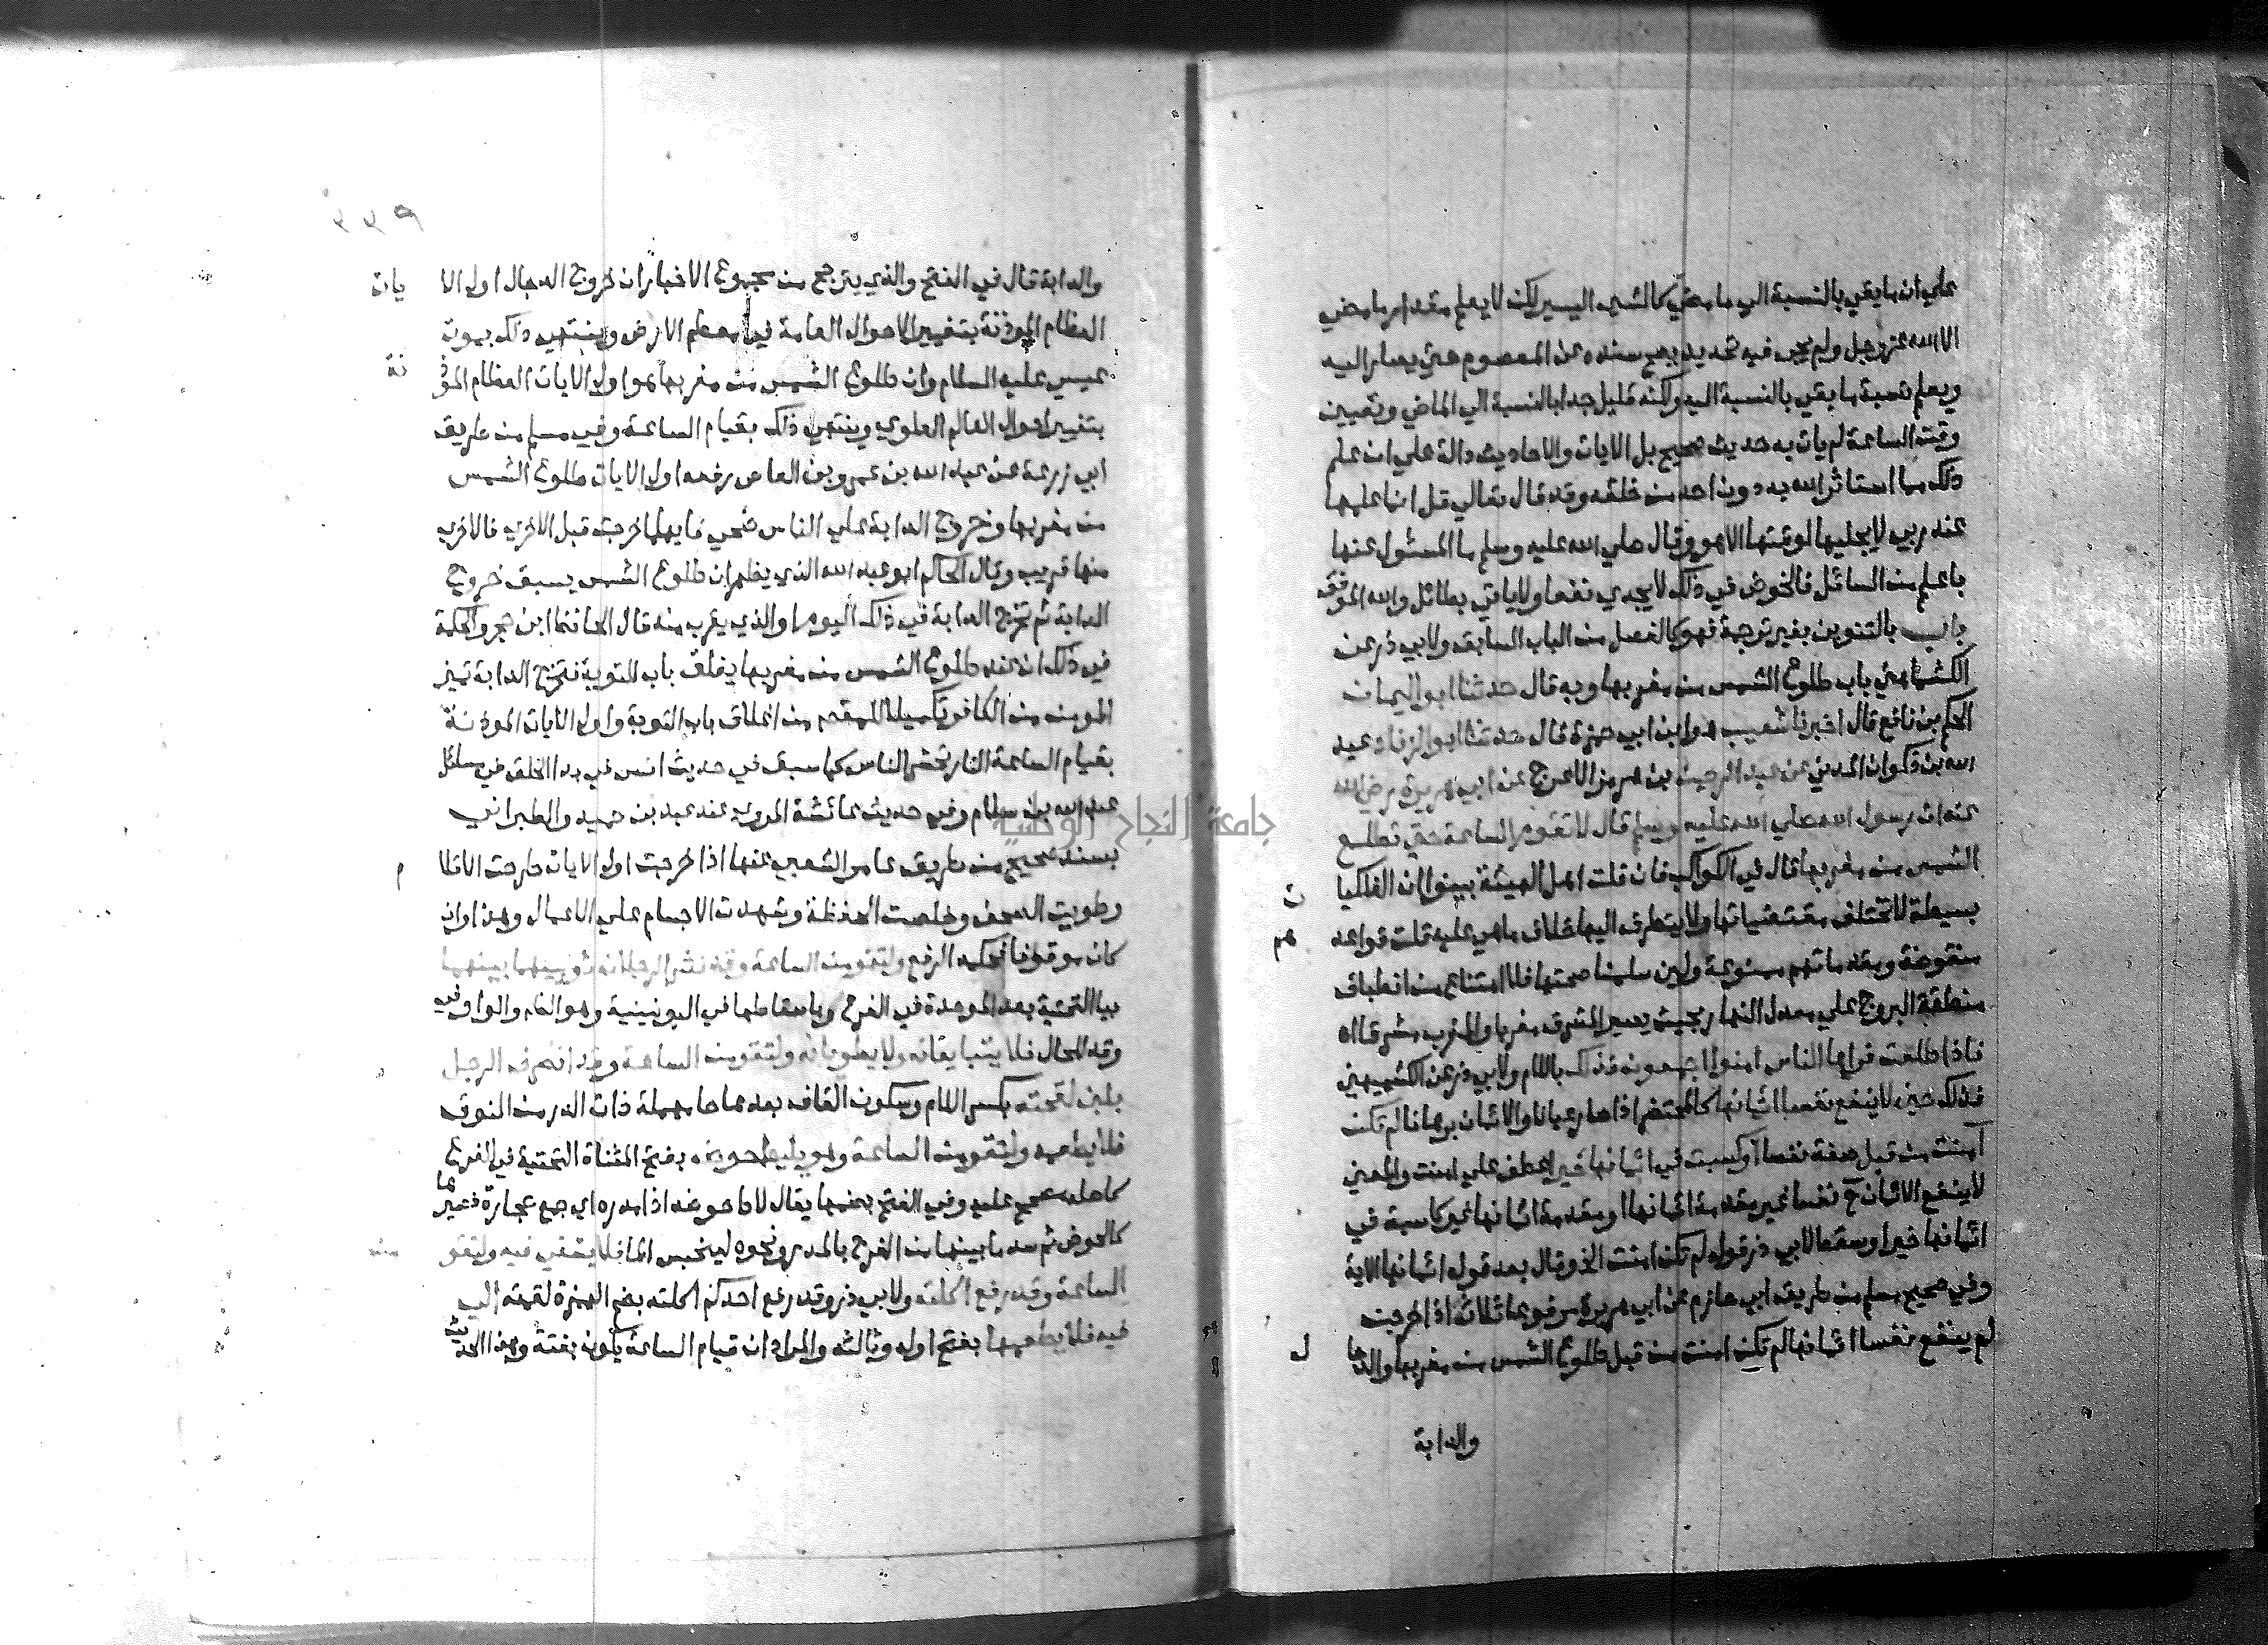 علي ان ما بقي بالنسبة الي ما مضي كالشي اليسير لكن لا يعلم مقدار ما مضي
الا الله عز وجل ولم يجي فيه تحديد يصح سنده عن المعصوم حتي يصار اليه
ويعلم نسبة ما بقي بالنسبة اليه ولكنه قليل جدا بالنسبة الي الماضي وتعيين
وقت الساعة لم يات به حديث صحيح بل الايات والاحاديث دالة علي ان علم
ذلك مما استاثر الله به دون احد من خلقه وقد قال تعالي قل انما علمها
عند ربي لا يجليها لوقتها الا هو وقال صلي الله عليه وسلم ما المسئول عنها
باعلم من السائل فالخوض في ذلك لا يجدي نفعا ولا ياتي بطائل والله الموفق
باب بالتنوين بغير ترجمة فهو كالفصل من الباب السابق ولابي ذر عن
الكشميهني باب طلوع الشمس من مغربها وبه قال حدثنا ابو اليمان
الحكم بن نافع قال اخبرنا شعيب هو ابن ابي حمزة قال حدثنا ابو الزناد عبد
الله بن ذكوان المدني عن عبد الرحمن بن هرمز الاعرج عن ابي هريرة رضي الله
عنه ان رسول الله صلي الله عليه وسلم قال لا تقوم الساعة حتي تطلع
الشمس من مغربها قال في الكواكب فان قلت اهل الهيئة بينوا ان الفلكيا ت
بسيطة لا تختلف مقتضياتها ولا يتطرق اليها خلاف ما هي عليه قلت قواعد هم
منقوضة ومقدماتهم ممنوعة ولين سلمنا صحتها فلا امتناع من انطباق
منطقة البروج علي معدل النهار بحيث يصير المشرق مغربا والمغرب مشرقا اه
فاذا طلعت فراها الناس امنوا اجمعون فذلك باللام ولابي ذر عن الكشميهني
فذلك حين لا ينفع نفسا ايمانها كالمحتضر اذا صار عيانا والايمان برهانا لم تكن
آمنت من قبل صفة نفسا او كسبت في ايمانها خيرا عطف علي امنت والمعني
لا ينفع الايمان ح نفسا غير مقدمة ايمانها او مقدمة ايمانها غير كاسبة في
ايمانها خيرا وسقط لابي ذر قوله لم تكن امنت الخ وقال بعد قوله ايمانها الاية
وفي صحيح مسلم من طريق ابي حازم عن ابي هريرة مرفوعا ثلاث اذا خرجت
لم ينفع نفسا ايمانها لم تكن امنت من قبل طلوع الشمس من مغربها والدجا ل
والدابة
٣٣٩
والدابة قال في الفتح والذي يترجح من مجموع الاخبار ان خروج الدجال اول الا يات
العظام الموذنة بتغيير الاحوال العامة في معظم الارض وينتهي ذلك بموت
عيسي عليه السلام وان طلوع الشمس من مغربها هو اول الايات العظام الموذ نة
بتغيير احوال العالم العلوي وينتهي ذلك بقيام الساعة وفي مسلم من طريق
ابي زرعة عن عبد الله بن عمرو بن العاص رفعه اول الايات طلوع الشمس
من مغربها وخروج الدابة علي الناس ضحي فايهما خرجت قبل الاخري فالاخري
منها قريب وقال الحاكم ابو عبد الله الذي يظهر ان طلوع الشمس يسبق خروج
الدابة ثم تخرج الدابة في ذلك اليوم او الذي يقرب منه قال الحافظ ابن حجر والحكمة
في ذلك ان عند طلوع الشمس من مغربها يغلق باب التوبة فتخرج الدابة تميز
المومن من الكافر تكميلا للمقصود من اغلاق باب التوبة واول الايات الموذنة
بقيام الساعة النار تحشر الناس كما سبق في حديث انس في بدء الخلق في مسائل
عبد الله بن سلام وفي حديث عائشة المروي عند عبد بن حميد والطبراني
بسند صحيح من طريق عامر الشعبي عنها اذا خرجت اول الايات طرحت الاقلا م
وطويت الصحف وخلصت الحفظة وشهدت الاجسام علي الاعمال وهذا وان
كان موقوفا فحكمه الرفع ولتقومن الساعة وقد نشر الرجلان ثوبهما بينهما
بيا التحتية بعد الموحدة في الفرع وباسقاطها في اليونينية وهو الفاء والواو فيه
وقد للحال فلا يتبايعانه ولا يطويانه ولتقومن الساعة وقد انصرف الرجل
بلبن لقحته بكسر اللام وسكون القاف بعدها حا مهملة ذات الدر من النوق
فلا يطعمه ولتقومن الساعة وهو يليط حوضه بفتح المثناة التحتية في الفرع
كاصله مصحح عليه وفي الفتح بضمها يقال لاط حوضه اذا مدره اي جمع حجارة فصيرها
كالحوض ثم سد ما بينها من الفرج بالمدر ونحوه لينحبس الما فلا يسقي فيه ولتقو من
الساعة وقد رفع اكلته ولابي ذر وقد رفع احدكم اكلته بضم الهمزة لقمته الي
فيه فلا يطعمها بفتح اوله وثالثه والمراد ان قيام الساعة يكون بغتة وهذا الحديث
جامعة النجاح الوطنية